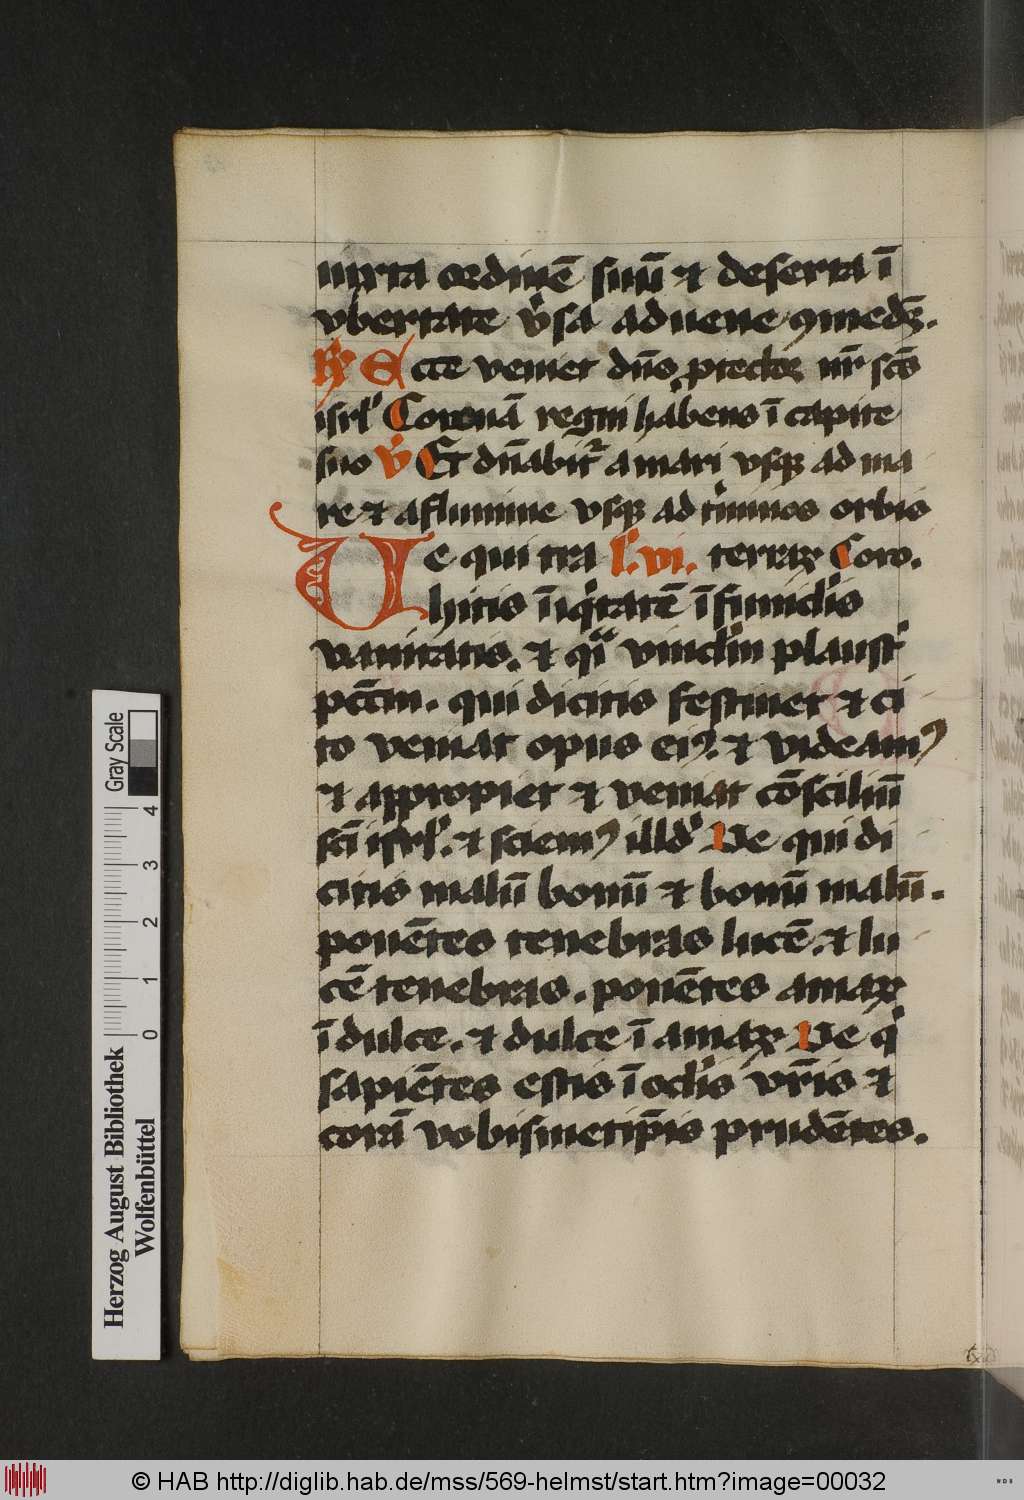 iuxta ordinē suū ⁊ deserta ī
vbertate v̾sa aduene ꝯmedēt.
R̷ Ecce veniet dn̄s ꝓtector nr̄ scs̄
isrl̓ Coronā regni habens ī capite
suo v̓ Et dn̄abit᷑ a mari vsqꝫ ad ma
re ⁊ a flumine vsqꝫ ad t̓minos orbis
Ve qui tra l̓. vi. terraꝝ Coro.
hitis īiq̓tatē ī funicl̓is
vanitatis. ⁊ qͣi vincl̓m plaustⁱ
pctm̄. qui dicitis festinet ⁊ ci
to veniat opus eiꝰ. ⁊ videamꝰ
⁊ appropiet ⁊ veniat cōsciliū
sc̄i isrl̓. ⁊ sciemꝰ illd̓ Ve qui di
citis malū bonū ⁊ bonū malū.
ponētes tenebras lucē. ⁊ lu
cē tenebras. ponētes amaꝝ
ī dulce. ⁊ dulce ī amaꝝ Ve qⁱ
sapiētes estis ī ocl̓is vr̄is ⁊
corā vobismetip̄is prudētes.
Gray Scale
4
3
2
1
0
Herzog August Bibliothek
Wolfenbüttel
© HAB http://diglib.hab.de/mss/569-helmst/start.htm?image=00032